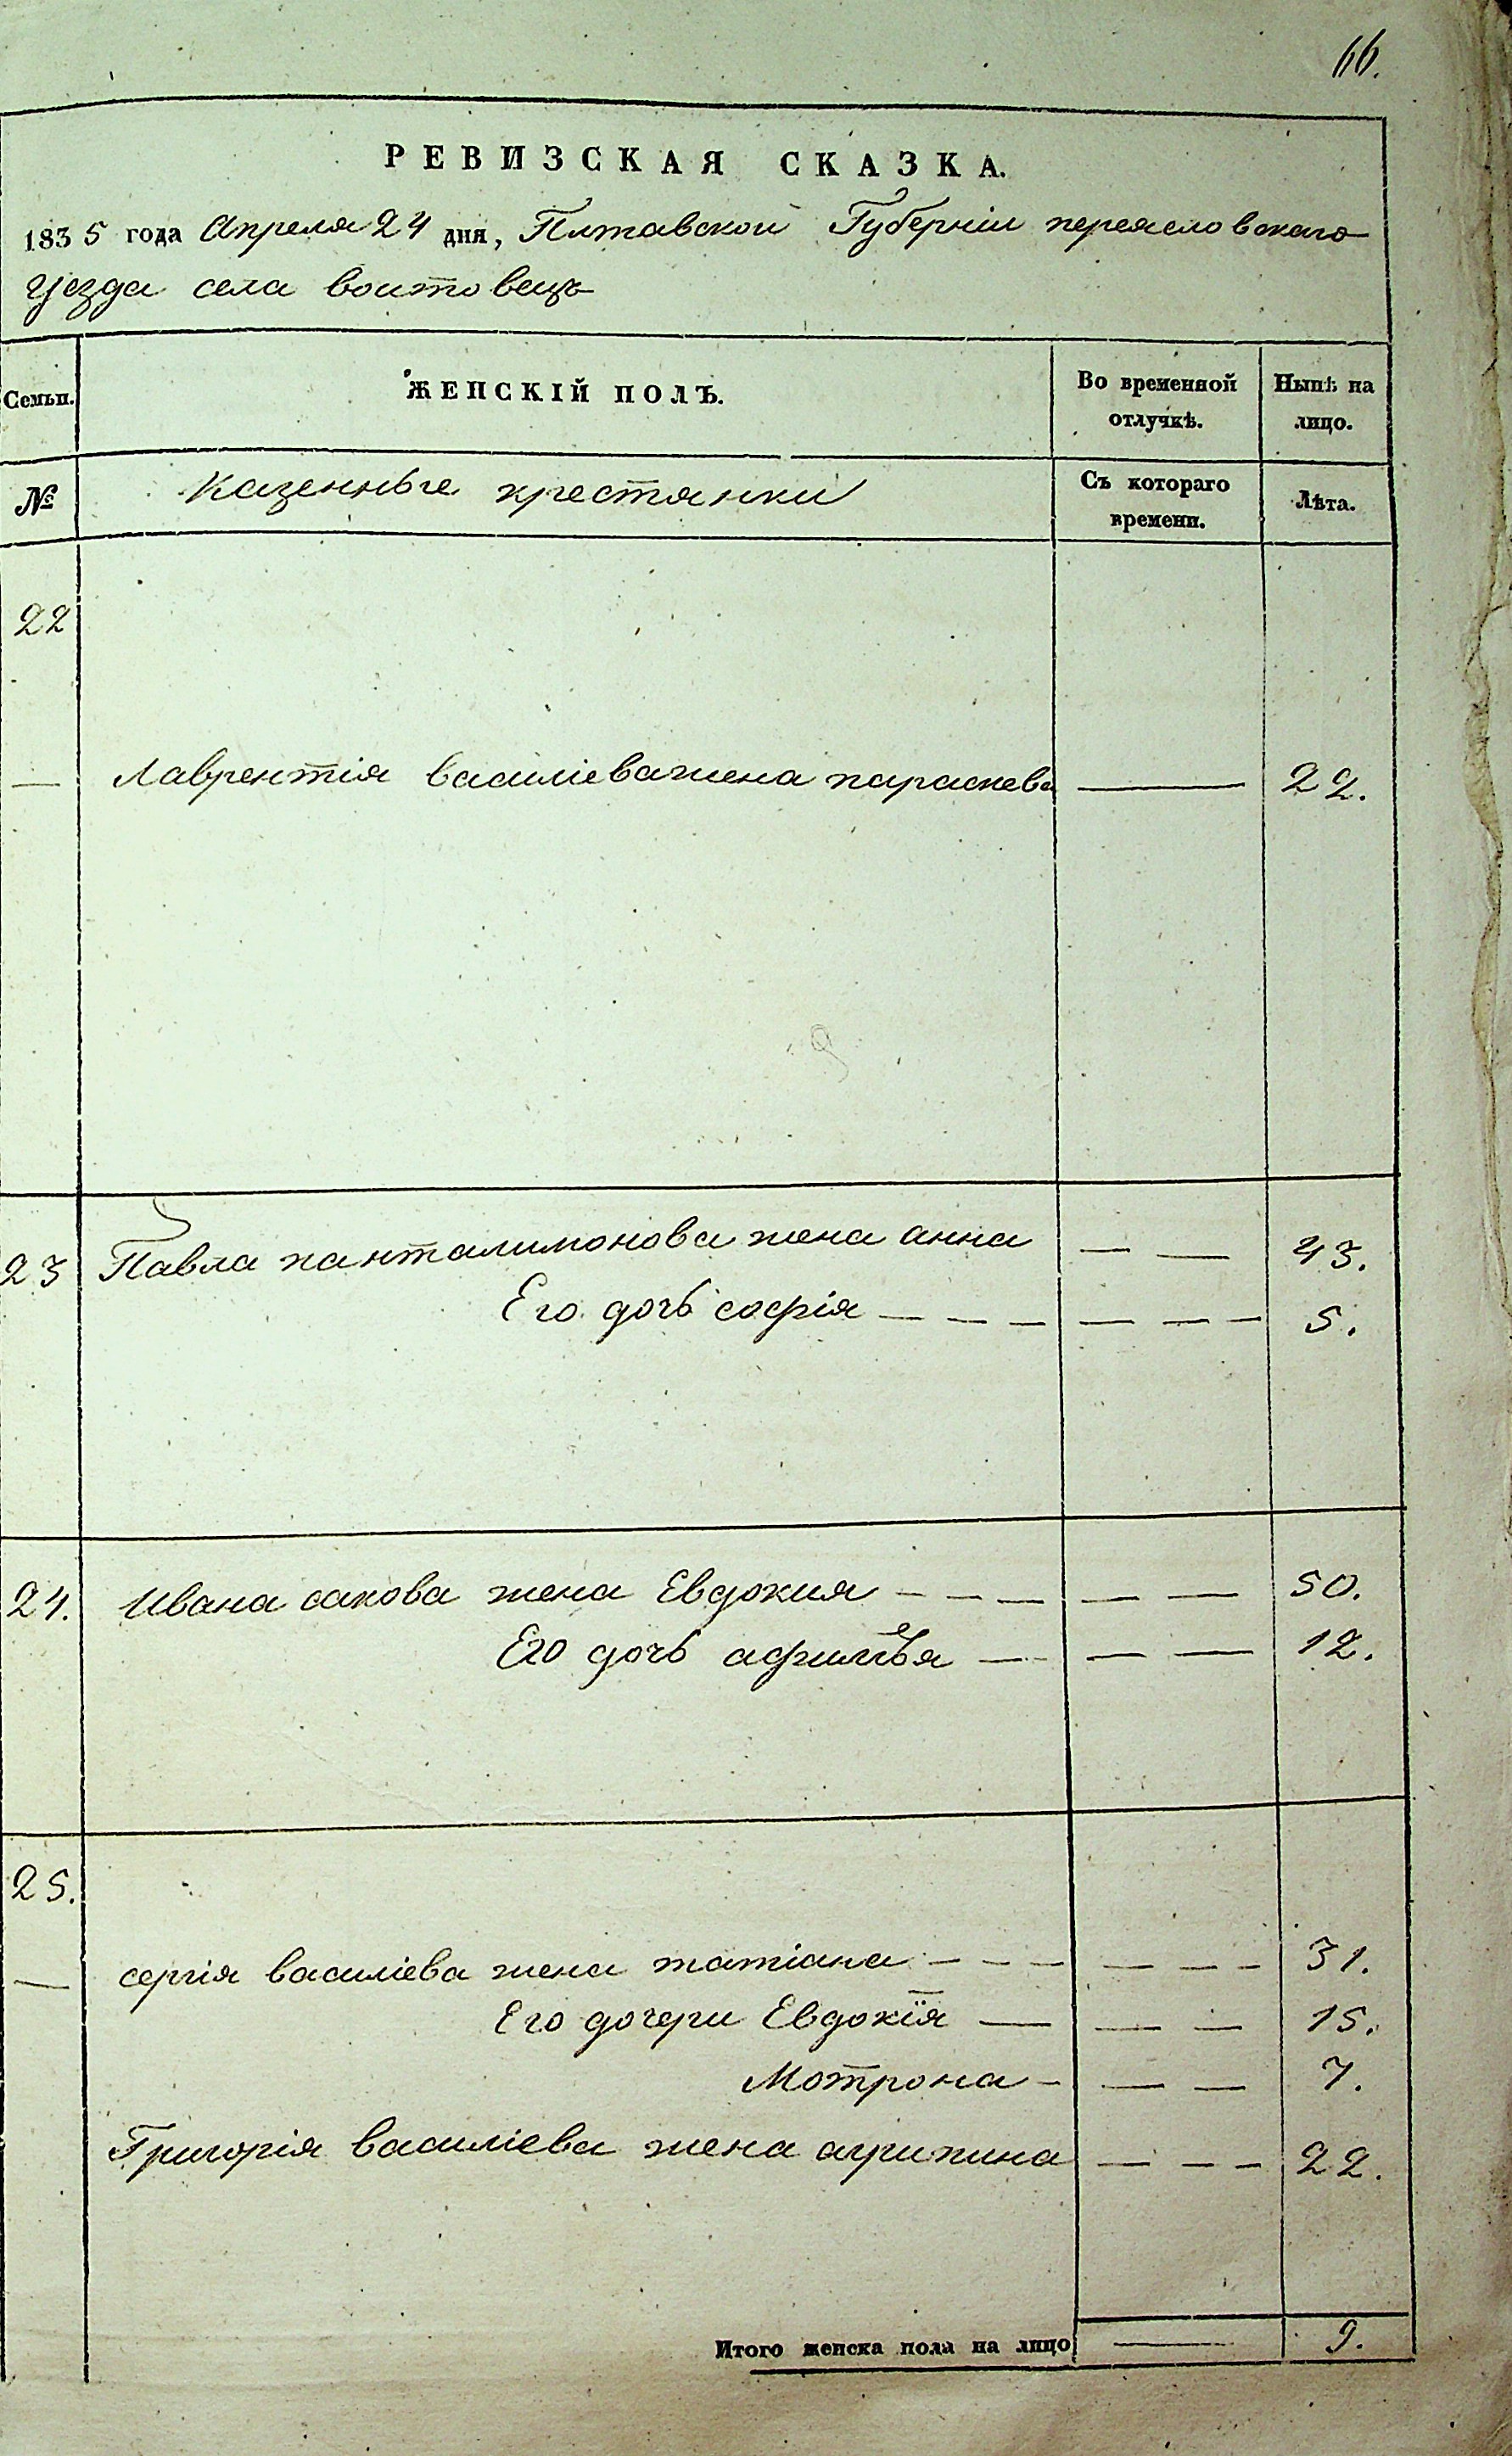 66.
РЕВИЗСКАЯ СКАЗКА.
1835 года Апреля 24 дня, Плтавской Губерніи переясловскаго
уезда села воитовецъ
Семьи.
ЖЕНСКІЙ ПОЛЪ.
Во временной отлучкѣ.
Нынѣ на лицо.
№
Казенные крестянки
Съ котораго времени.
Лѣта.
22
— Лаврентія василіева жена параскева — 22.
23 Павла панталимонова жена анна — — 43.
Его дочь софія — — — — — — 5.
24. Ивана сакова жена Евдокия — — — — — 50.
Его дочь афимья — — — 12.
25.
— сергія василіева жена татіана — — — — — — 31.
Его дочери Евдокїя — — — 15.
Мотрона — — — 7.
Григорія василіева жена агрипина — — — 22.
Итого женска пола на лицо — 9.